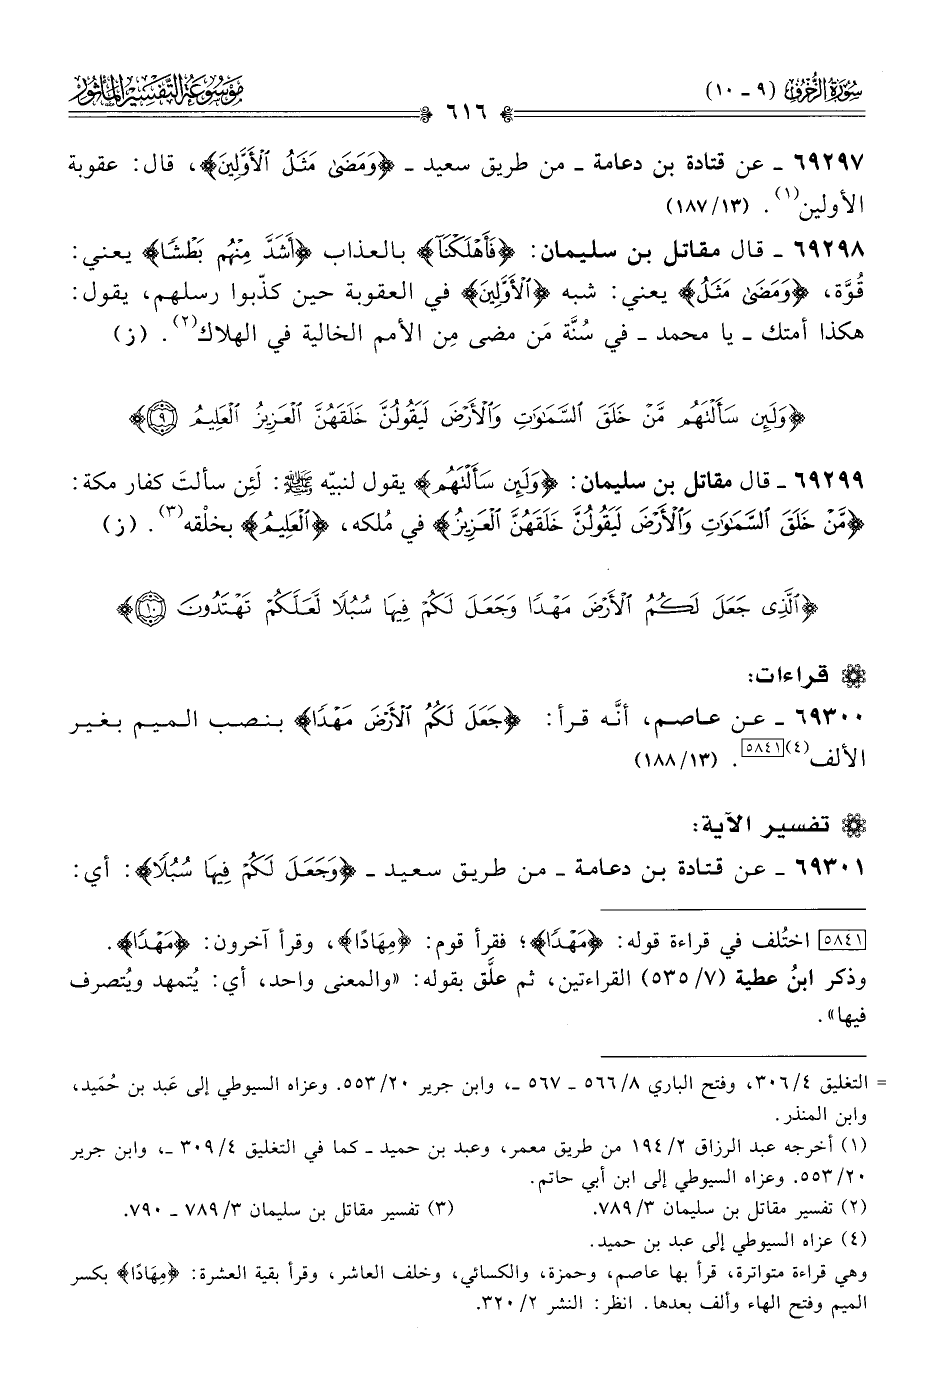 سُورَةُ الزُّخْرُفِ (٩ - ١٠)
٦١٦
مَوْسُوعَةُ التَّفْسِيرِ المَأْثُورِ
٦٩٢٩٧ ـ عن قتادة بن دعامة ـ من طريق سعيد ـ ﴿وَمَضَىٰ مَثَلُ ٱلْأَوَّلِينَ﴾، قال: عقوبة
الأولين(١). (١٣/ ١٨٧)
٦٩٢٩٨ ـ قال مقاتل بن سليمان: ﴿فَأَهْلَكْنَآ﴾ بالعذاب ﴿أَشَدَّ مِنْهُم بَطْشًا﴾ يعني:
قُوَّة، ﴿وَمَضَىٰ مَثَلُ﴾ يعني: شبه ﴿ٱلْأَوَّلِينَ﴾ في العقوبة حين كذّبوا رسلهم، يقول:
هكذا أمتك ـ يا محمد ـ في سُنَّة مَن مضى مِن الأمم الخالية في الهلاك(٢). (ز)
﴿وَلَئِن سَأَلْتَهُم مَّنْ خَلَقَ ٱلسَّمَٰوَٰتِ وَٱلْأَرْضَ لَيَقُولُنَّ خَلَقَهُنَّ ٱلْعَزِيزُ ٱلْعَلِيمُ ٩﴾
٦٩٢٩٩ ـ قال مقاتل بن سليمان: ﴿وَلَئِن سَأَلْتَهُم﴾ يقول لنبيّه ﷺ: لَئِن سألتَ كفار مكة:
﴿مَّنْ خَلَقَ ٱلسَّمَٰوَٰتِ وَٱلْأَرْضَ لَيَقُولُنَّ خَلَقَهُنَّ ٱلْعَزِيزُ﴾ في مُلكه، ﴿ٱلْعَلِيمُ﴾ بخلْقه(٣). (ز)
﴿ٱلَّذِى جَعَلَ لَكُمُ ٱلْأَرْضَ مَهْدًا وَجَعَلَ لَكُمْ فِيهَا سُبُلًا لَّعَلَّكُمْ تَهْتَدُونَ ١٠﴾
قراءات:
٦٩٣٠٠ ـ عن عاصم، أنَّه قرأ: ﴿جَعَلَ لَكُمُ ٱلْأَرْضَ مَهْدًا﴾ بنصب الميم بغير
الألف(٤) [٥٨٤١]. (١٣/ ١٨٨)
تفسير الآية:
٦٩٣٠١ ـ عن قتادة بن دعامة ـ من طريق سعيد ـ ﴿وَجَعَلَ لَكُمْ فِيهَا سُبُلًا﴾: أي:
[٥٨٤١] اختُلف في قراءة قوله: ﴿مَهْدًا﴾؛ فقرأ قوم: ﴿مِهَادًا﴾، وقرأ آخرون: ﴿مَهْدًا﴾.
وذكر ابنُ عطية (٧/ ٥٣٥) القراءتين، ثم علَّق بقوله: «والمعنى واحد، أي: يُتمهد ويُتصرف
فيها».
= التغليق ٤/ ٣٠٦، وفتح الباري ٨/ ٥٦٦ ـ ٥٦٧ ـ، وابن جرير ٢٠/ ٥٥٣. وعزاه السيوطي إلى عَبد بن حُمَيد،
وابن المنذر.
(١) أخرجه عبد الرزاق ٢/ ١٩٤ من طريق معمر، وعبد بن حميد ـ كما في التغليق ٤/ ٣٠٩ ـ، وابن جرير
٢٠/ ٥٥٣. وعزاه السيوطي إلى ابن أبي حاتم.
(٢) تفسير مقاتل بن سليمان ٣/ ٧٨٩. (٣) تفسير مقاتل بن سليمان ٣/ ٧٨٩ ـ ٧٩٠.
(٤) عزاه السيوطي إلى عبد بن حميد.
وهي قراءة متواترة، قرأ بها عاصم، وحمزة، والكسائي، وخلف العاشر، وقرأ بقية العشرة: ﴿مِهَادًا﴾ بكسر
الميم وفتح الهاء وألف بعدها. انظر: النشر ٢/ ٣٢٠.